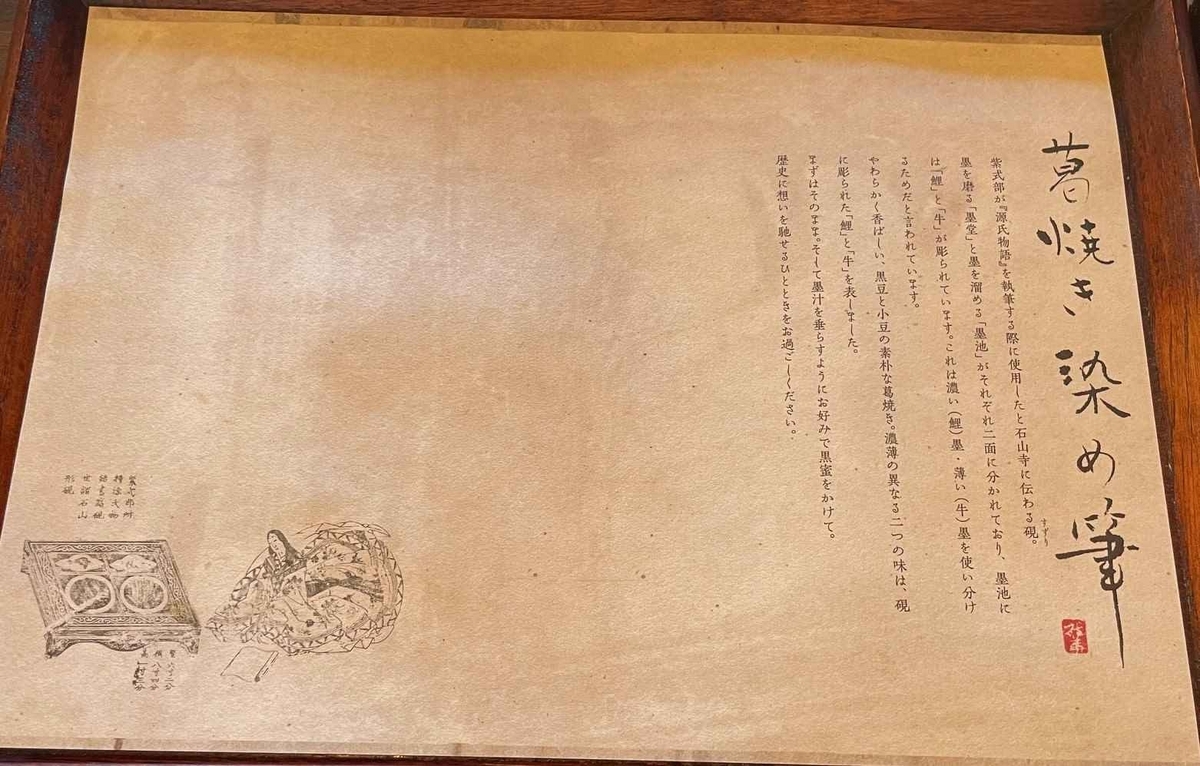 葛焼き 染め筆
紫式部が『源氏物語』を執筆する際に使用したと石山寺に伝わる硯。
すずり
墨を磨る「墨堂」と墨を溜める「墨池」がそれぞれ二面に分かれており、墨池に
は「鯉」と「牛」が彫られています。これは濃い(鯉)墨・薄い(牛)墨を使い分け
るためだと言われています。
やわらかく香ばしい、黒豆と小豆の素朴な葛焼き。濃薄の異なる二つの味は、硯
に彫られた「鯉」と「牛」を表しました。
まずはそのまま。そして墨汁を垂らすようにお好みで黒蜜をかけて。
歴史に想いを馳せるひとときをお過ごしください。
紫式部所
世諸石山
形硯
竪 六寸二分
横 八寸四分